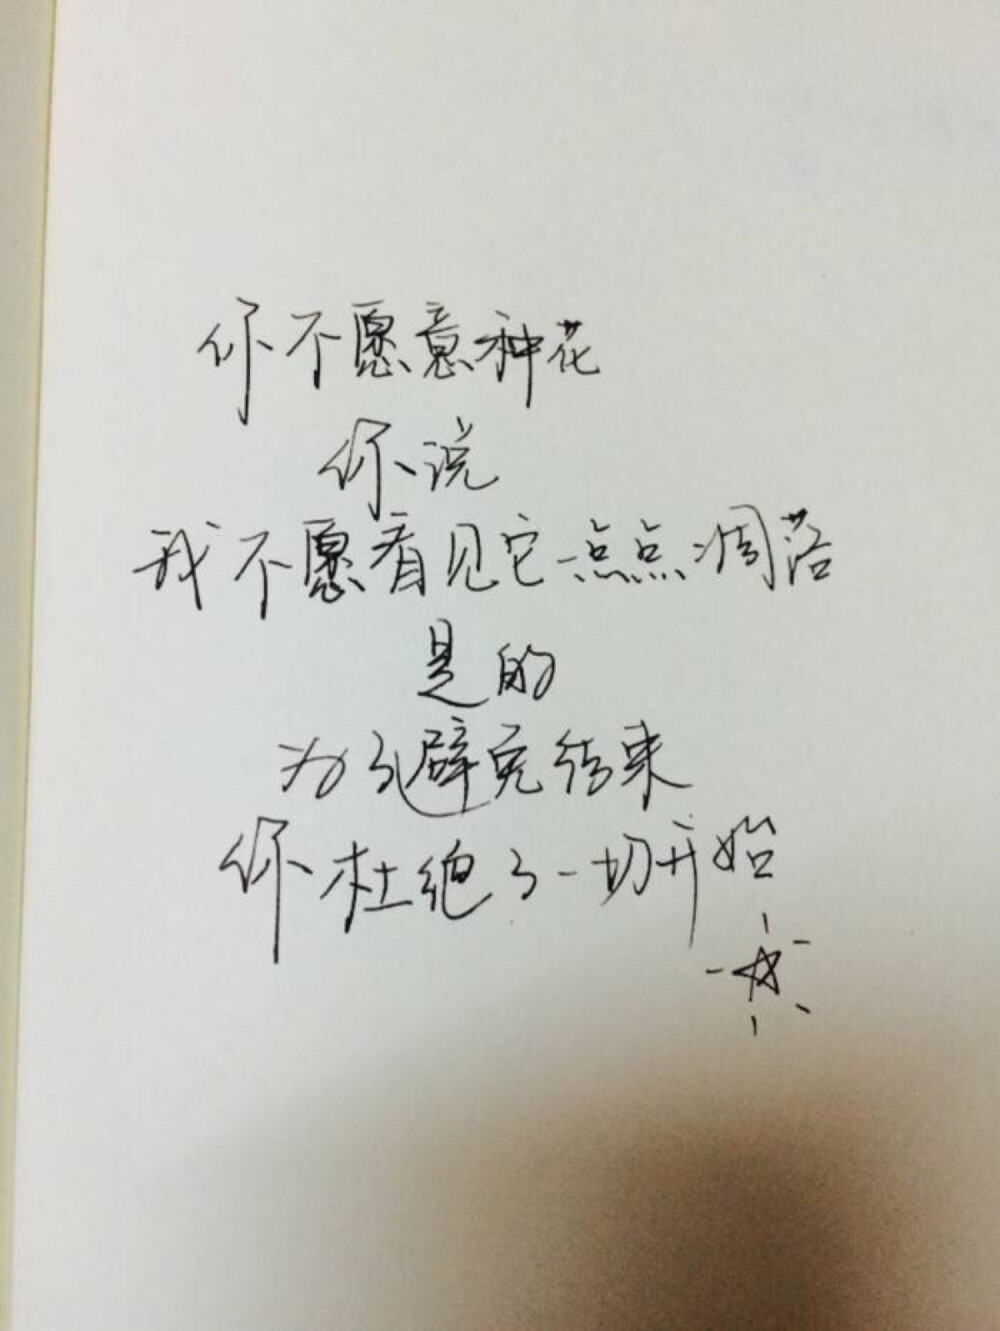 你不愿意种花
你说
我不愿看见它一点点凋落
是的
为了避免结束
你杜绝了一切开始